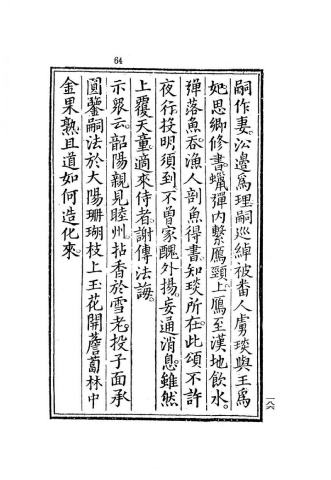 64
嗣作妻。㳂邊為理嗣巡綽被番人虜琰與王為
妃思鄉修書。蠟彈內繫鴈頸上。鴈至漢地飲水。
彈落魚吞。漁人剖魚得書。知琰所在。此頌不許
夜行。投明須到。不曾家醜外揚。妄通消息。雖然
上覆天童。適來侍者謝傳法誨。
示眾云。韶陽親見睦州拈香於雪老。投子面承
圓鑒嗣法於大陽。珊瑚枝上玉花開。薝蔔林中
金果熟。且道如何造化來。
一八六